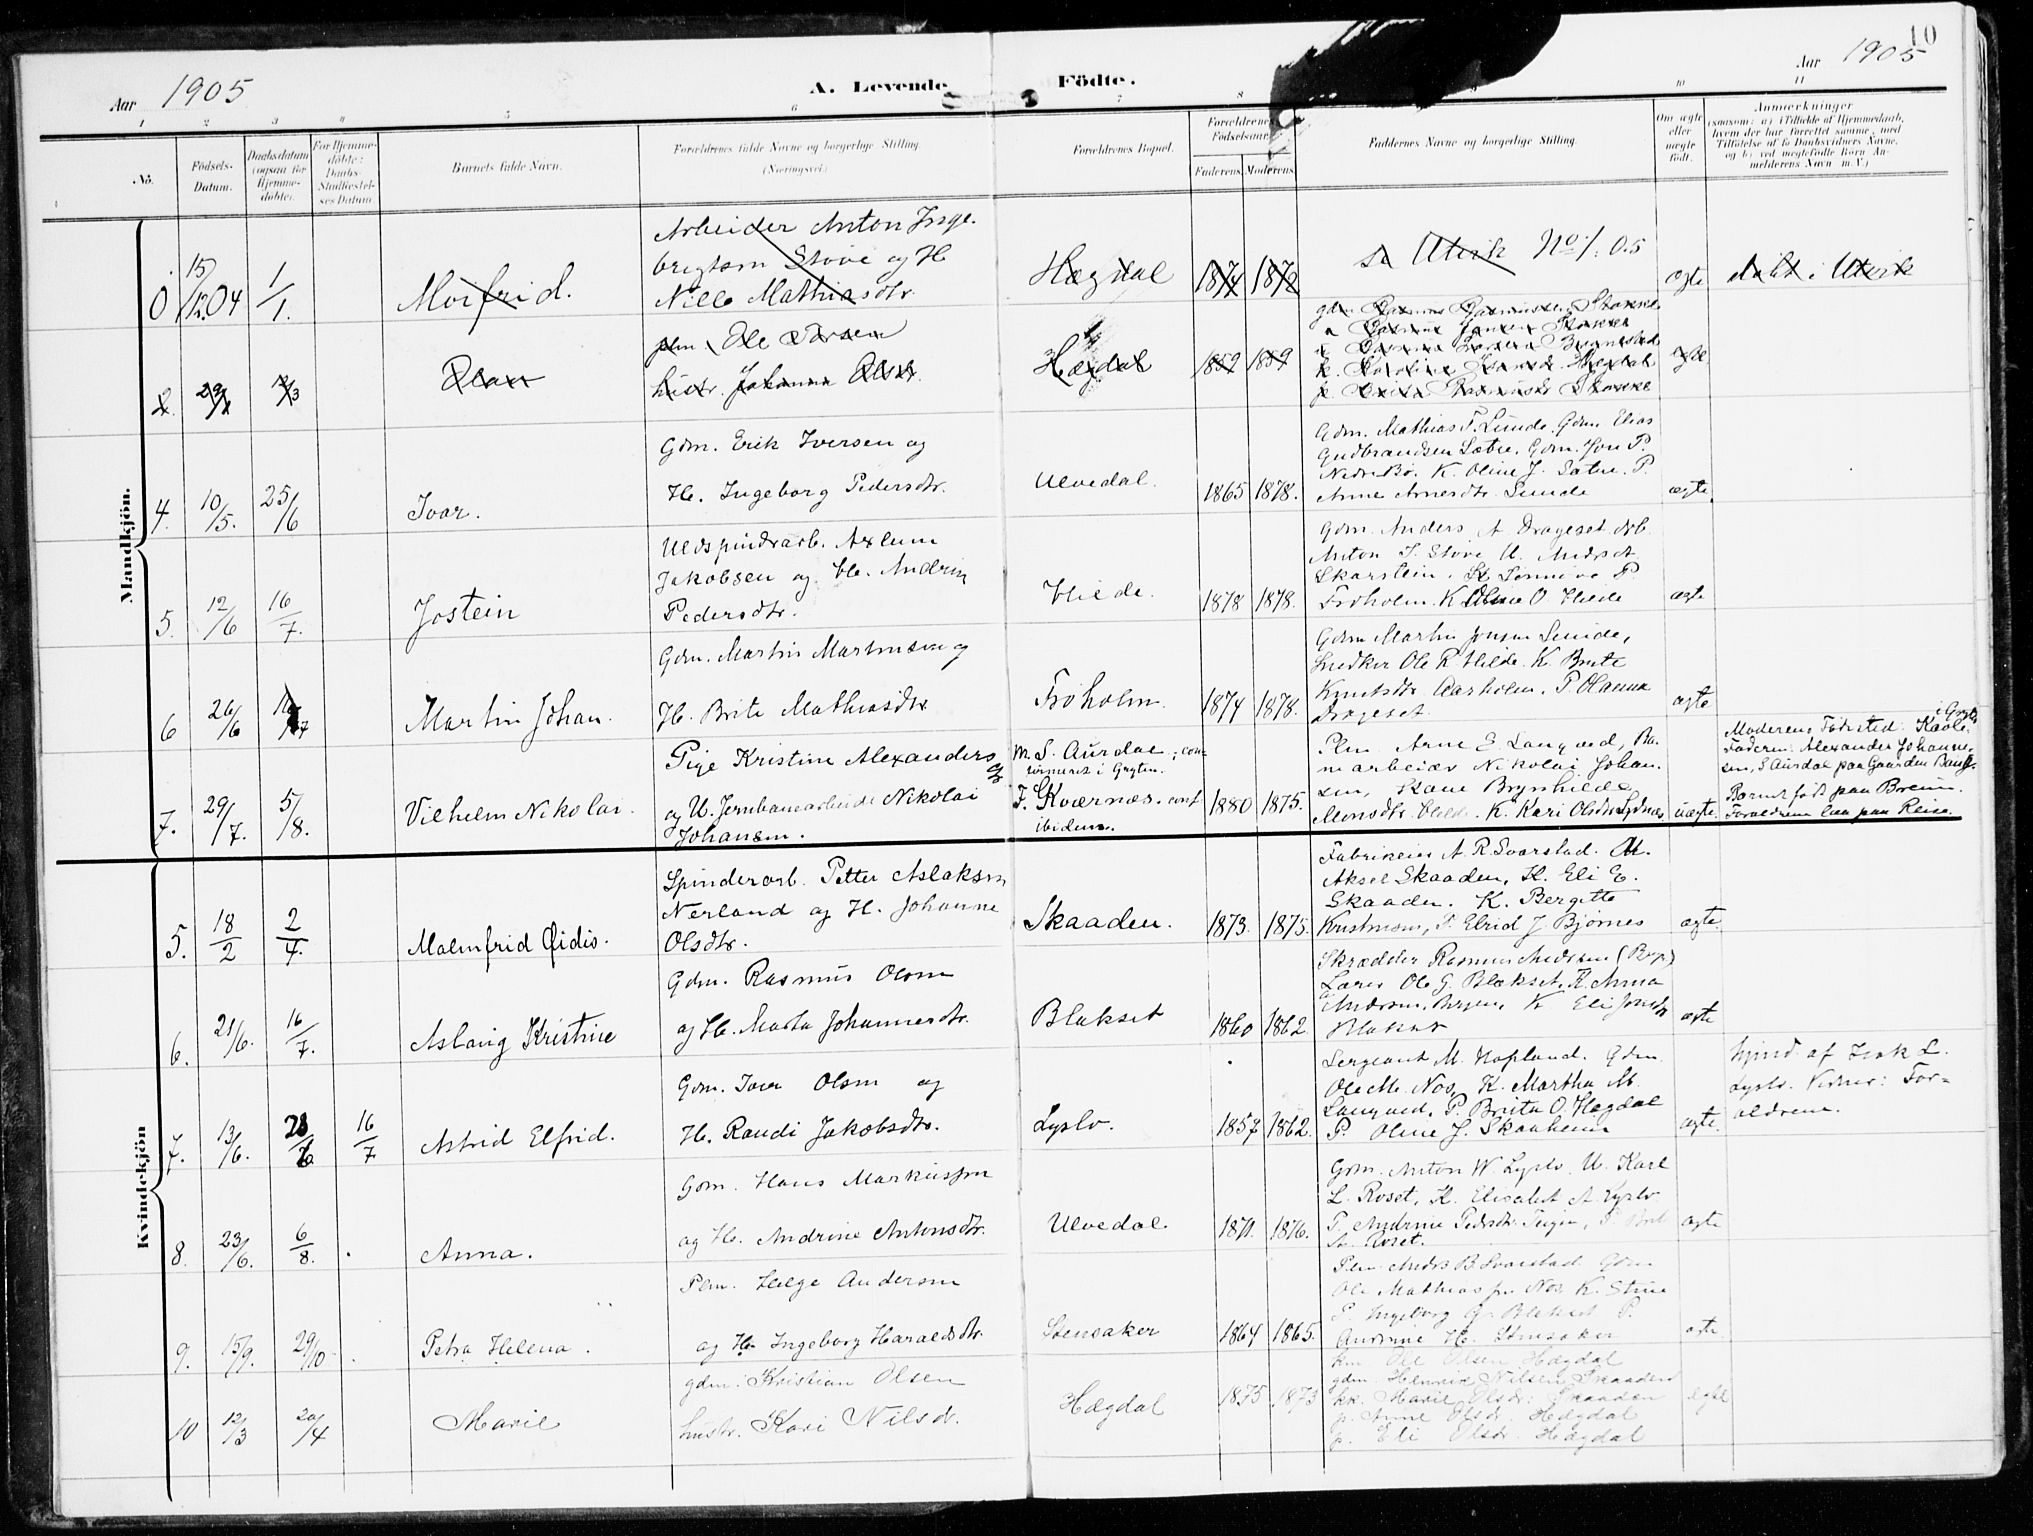 10
Aar 1905
A. Levende Födte.
Aar 1905
1 2 3 4 5 6 7 8 10 11
No.
Födsels-Datum.
Daabsdatum (ogsaa for Hjemme-døbte).
For Hjemme-døbte: Daabs-Stadfæstel-ses Datum.
Barnets fulde Navn.
Forældrenes fulde Navne og borgerlige Stilling (Næringsvei.)
Forældrenes Bopæl.
Forældrenes Födselsaar
Faderens Moderens
Faddernes Navne og borgerlige Stilling.
Om ægte eller uægte födt.
Anmerkninger
(saasom: a) i Tilfælde af Hjemmedaab,
hvem der har forrettet samme, med
Tilföielse af to Daabsvidners Navne,
og b) ved uægtefödte Börn An-
melderens Navn m. V.)
Mandkjön.
0 15/12 04 1/1. Moifrid.
Arbeider Anton Inge-
brigtsen Stove og H
Nille Mathiasdtr.
Hægdal 1874 1872
Utvik No 1. 05
ægte
døbt i Utvik
2. Olav
plm Ole Larsen
hustr. Johanna Olsdr.
Hægdal 1859 1859
ægte
4. 10/5. 25/6 Ivar.
Gdm. Erik Iversen og
H. Ingeborg Pedersdtr.
Ulvedal. 1865 1878.
Gdm. Mathias T. Lunde, Gdm. Elias
Gudbrandsen Sætre, Gdm. Jon P.
Nedre Bø. K. Oline J. Sætre. P.
Anne Arnesdtr. Lunde
ægte.
5. 12/6 16/7. Jostein
Uldspindarb. Axlum
Jakobsen og H. Andrin
Pedersdtr.
Hilde. 1878 1878.
Gdm. Anders A Drageset Arb.
Anton I. Stove U. Anders A
Skarstein. K Sønnive P
Froholm. K Oline O Hilde
ægte
6 26/6 16/7 Martin Johan.
Gdm. Martin Martinsen og
H. Brite Mathiasdtr
Froholm. 1874 1878.
Gdm Martin Jonsen Lunde,
Snedker Ole R. Hilde. K. Brite
Knutsdtr. Aarholen. P. Olauna
Drageset.
ægte
7. 29/7. 5/8. Vilhelm Nikolai.
Pige Kristine Alexandersd.
og U. Jernbanearbeider Nikolai
Johansen.
M. S. Aurdal; con-
firmeret i Gryten.
F. Kværnæs. conf
ibidem.
1880 1875.
Plm Arne E. Langved, Ba-
nearbeider Nikolai Johan-
sen, Kone Brynhilde
Monsdtr. Hilde. K. Kari Olsdtr Sydnæs
uægte.
Moderens Fødested: Kaole i Gryten
Faderen: Alexander Johanne-
sen, S Aurdal paa Gaarden Bang.
Barnet født paa Breim.
Forældrene kun paa Reise.
Kvindekjön
5. 18/2 2/4. Malmfrid Ødis.
Spinderarb. Petter Aslaksen
Nerland og H. Johanne
Olsdtr.
Skaaden. 1873. 1875.
Fabrikeier A. R. Svarstad. U.
Aksel Skaaden, K. Eli E.
Skaaden. K. Bergitte
Kristensen, P. Elrid J. Bjørnes
ægte.
6. 21/6. 16/7. Aslaug Kristine
Gdm. Rasmus Olsen
og H. Marta Johannesdtr.
Blakset 1860 1862.
Skrædder Rasmus Andersen (Brp.)
Lærer Ole G. Blakset, K. Anna
Andersen, Bergen, K Eli Jonsdtr
Blakset
ægte
7. 13/6. 16/7 Astrid Elfrid.
Gdm. Iver Olsen og
H. Randi Jakobsdtr.
Lyslo. 1857 1862.
Sergeant M. Hopland. Gdm.
Ole M. Nos, K. Martha M.
Langved, P. Brita O. Hægdal
P. Oline J. Skaaheim
ægte.
hjmd. af Isak L.
Lyslo. Vidner: For-
ældrene.
8. 23/6. 6/8. Anna.
Gdm. Hans Markussen
og H. Andrine Antonsdtr.
Ulvedal. 1871. 1876.
Gdm. Anton W. Lyslo, U. Karl
L. Roset, K. Elisabet A. Lyslo
P. Andrine Pedersdtr. Teigen,
Roset.
ægte
9. 15/9. 29/10 Petra Helena.
Plm. Helge Andersen
og H. Ingeborg Haraldsdtr.
Stensaker 1864 1865.
Plm. Anders B Svarstad Gdm
Ole Mathiassen Nos. K. Stine
P. Ingeborg G. Blakset P.
Andrine H. Stensaker
ægte
10 12/3 20/4 Marie
gdm: Kristian Olsen
hustr. Kari Nilsdr.
Hægdal 1875 1873
km Ole Olsen Hægdal
gdm. Henrik Nilsen Skaaden
kk. Marie Olsdr: Skaaden
p. Anne Olsdr. Hægdal
p. Eli Olsdr. Hægdal
ægte